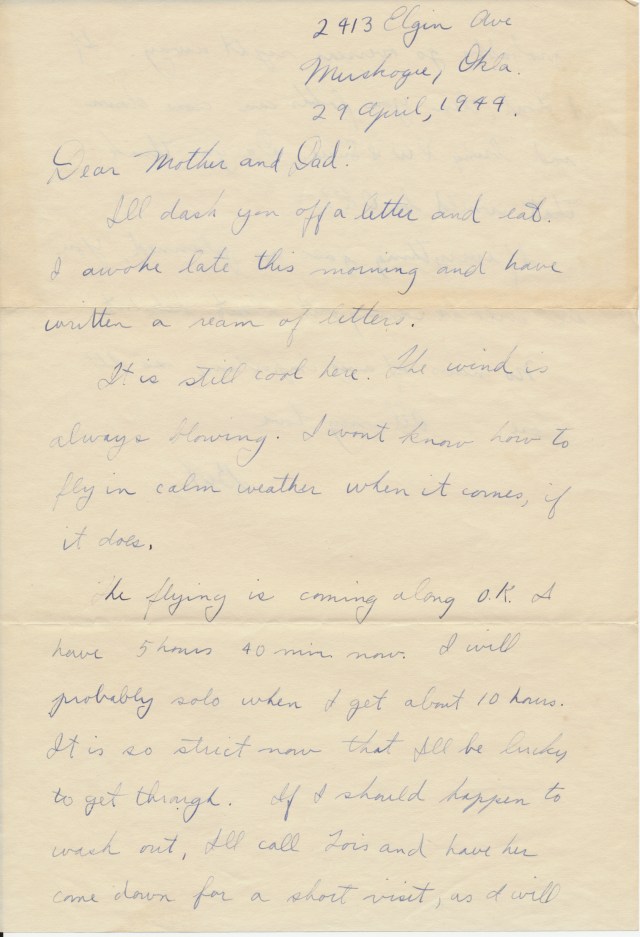 2413 Elgin Ave
Muskogee, Okla.
29 April, 1944.
Dear Mother and Dad:
I'll dash you off a letter and eat.
I awoke late this morning and have
written a ream of letters.
It is still cool here. The wind is
always blowing. I wont know how to
fly in calm weather when it comes, if
it does.
The flying is coming along O.K. I
have 5 hours 40 min. now. I will
probably solo when I get about 10 hours.
It is so strict now that I'll be lucky
to get through. If I should happen to
wash out, I'll call Lois and have her
come down for a short visit, as I will